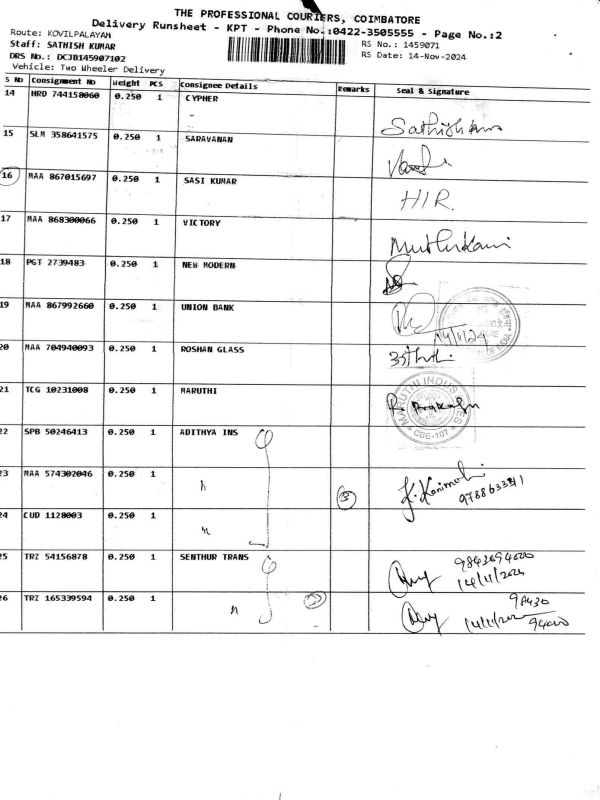 THE PROFESSIONAL COURIERS, COIMBATORE
Delivery Runsheet - KPT - Phone No.:0422-3505555 - Page No.:2
Route: KOVILPALAYAM
Staff: SATHISH KUMAR
RS No.: 1459071
DRS No.: DCJB145907102
RS Date: 14-Nov-2024
Vehicle: Two Wheeler Delivery
S No Consignment No Weight PCS Consignee Details Remarks Seal & Signature
14 HRD 744158060 0.250 1 CYPHER
Sathishkumar
15 SLM 358641575 0.250 1 SARAVANAN
16 MAA 867015697 0.250 1 SASI KUMAR
HIR.
17 MAA 868300066 0.250 1 VICTORY
Muthukani
18 PGT 2739483 0.250 1 NEW MODERN
19 MAA 867992660 0.250 1 UNION BANK
14/11/24
20 MAA 704940093 0.250 1 ROSHAN GLASS
21 TCG 10231008 0.250 1 MARUTHI
MARUTHI INDUS
CBE-107
22 SPB 50246413 0.250 1 ADITHYA INS
23 MAA 574302046 0.250 1 " 3 K. Kanimoli
24 CUD 1128003 0.250 1 "
25 TRZ 54156878 0.250 1 SENTHUR TRANS 9843094000
14/11/2024
26 TRZ 165339594 0.250 1 " 98430
94000